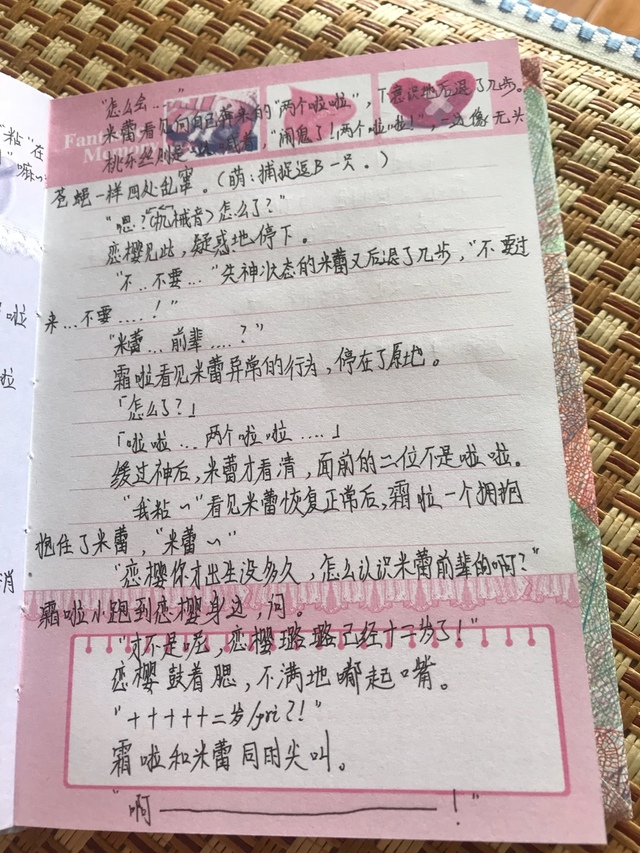 "怎么会……"
米蕾看见向自己奔来的"两个啦啦",下意识地后退了几步。
桃乐丝则是 "闹鬼了!两个啦啦!",一边像无头
苍蝇一样四处乱窜。(萌:捕捉逗B一只。)
"嗯?(机械音)怎么了?"
恋樱见此,疑惑地停下。
"不…不要…"失神状态的米蕾又后退了几步,"不要过
来…不要……!"
"米蕾…前辈……?"
霜啦看见米蕾异常的行为,停在了原地。
「怎么了?」
「啦啦…两个啦啦……」
缓过神后,米蕾才看清,面前的二位不是啦啦。
"我粘~"看见米蕾恢复正常后,霜啦一个拥抱
抱住了米蕾,"米蕾~"
"恋樱你才出生没多久,怎么认识米蕾前辈的啊?"
霜啦小跑到恋樱身边,问。
"才不是呢,恋樱璐璐已经十二岁了!"
恋樱鼓着腮,不满地嘟起嘴。
"十十十十十二岁/pri?!"
霜啦和米蕾同时尖叫。
"啊——————!"
"粘"在
"嘛~
啦
啦
Fan
Memor